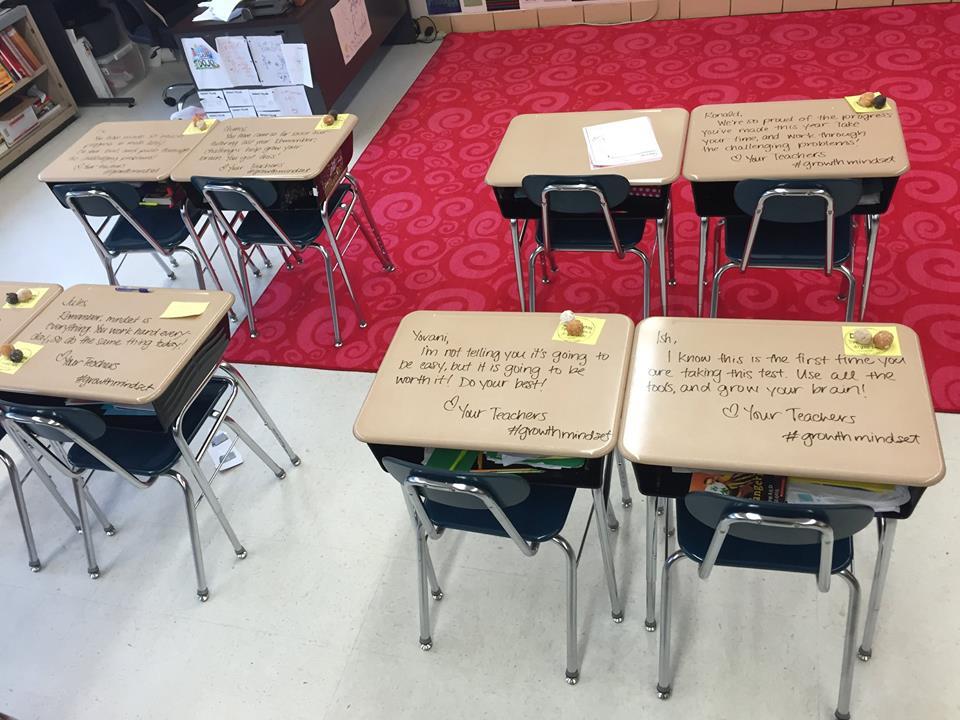 the challenging problems!
♡ Your teachers
#growthmindset
You have come so far since
last year. Remember,
challenges help grow your
brain. You got this!
♡ Your Teachers
#growthmindset
Ronald,
We're so proud of the progress
you've made this year. Take
your time, and work through
the challenging problems!
♡ Your Teachers
#growthmindset
Jules,
Remember, mindset is
everything. You work hard every-
day, so do the same thing today!
♡ Your Teachers
#growthmindset
Yovani,
I'm not telling you it's going to
be easy, but it is going to be
worth it! Do your best!
♡ Your Teachers
#growthmindset
Ish,
I know this is the first time you
are taking this test. Use all the
tools, and grow your brain!
♡ Your Teachers
#growthmindset